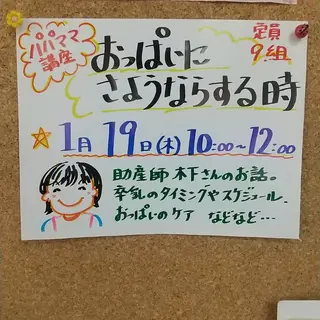 パパママ
講座
定員
9組
おっぱいに
さようならする時
1月19日(木)10:00~12:00
助産師 木下さんのお話。
卒乳のタイミングやスケジュール.
おっぱいのケア などなど…